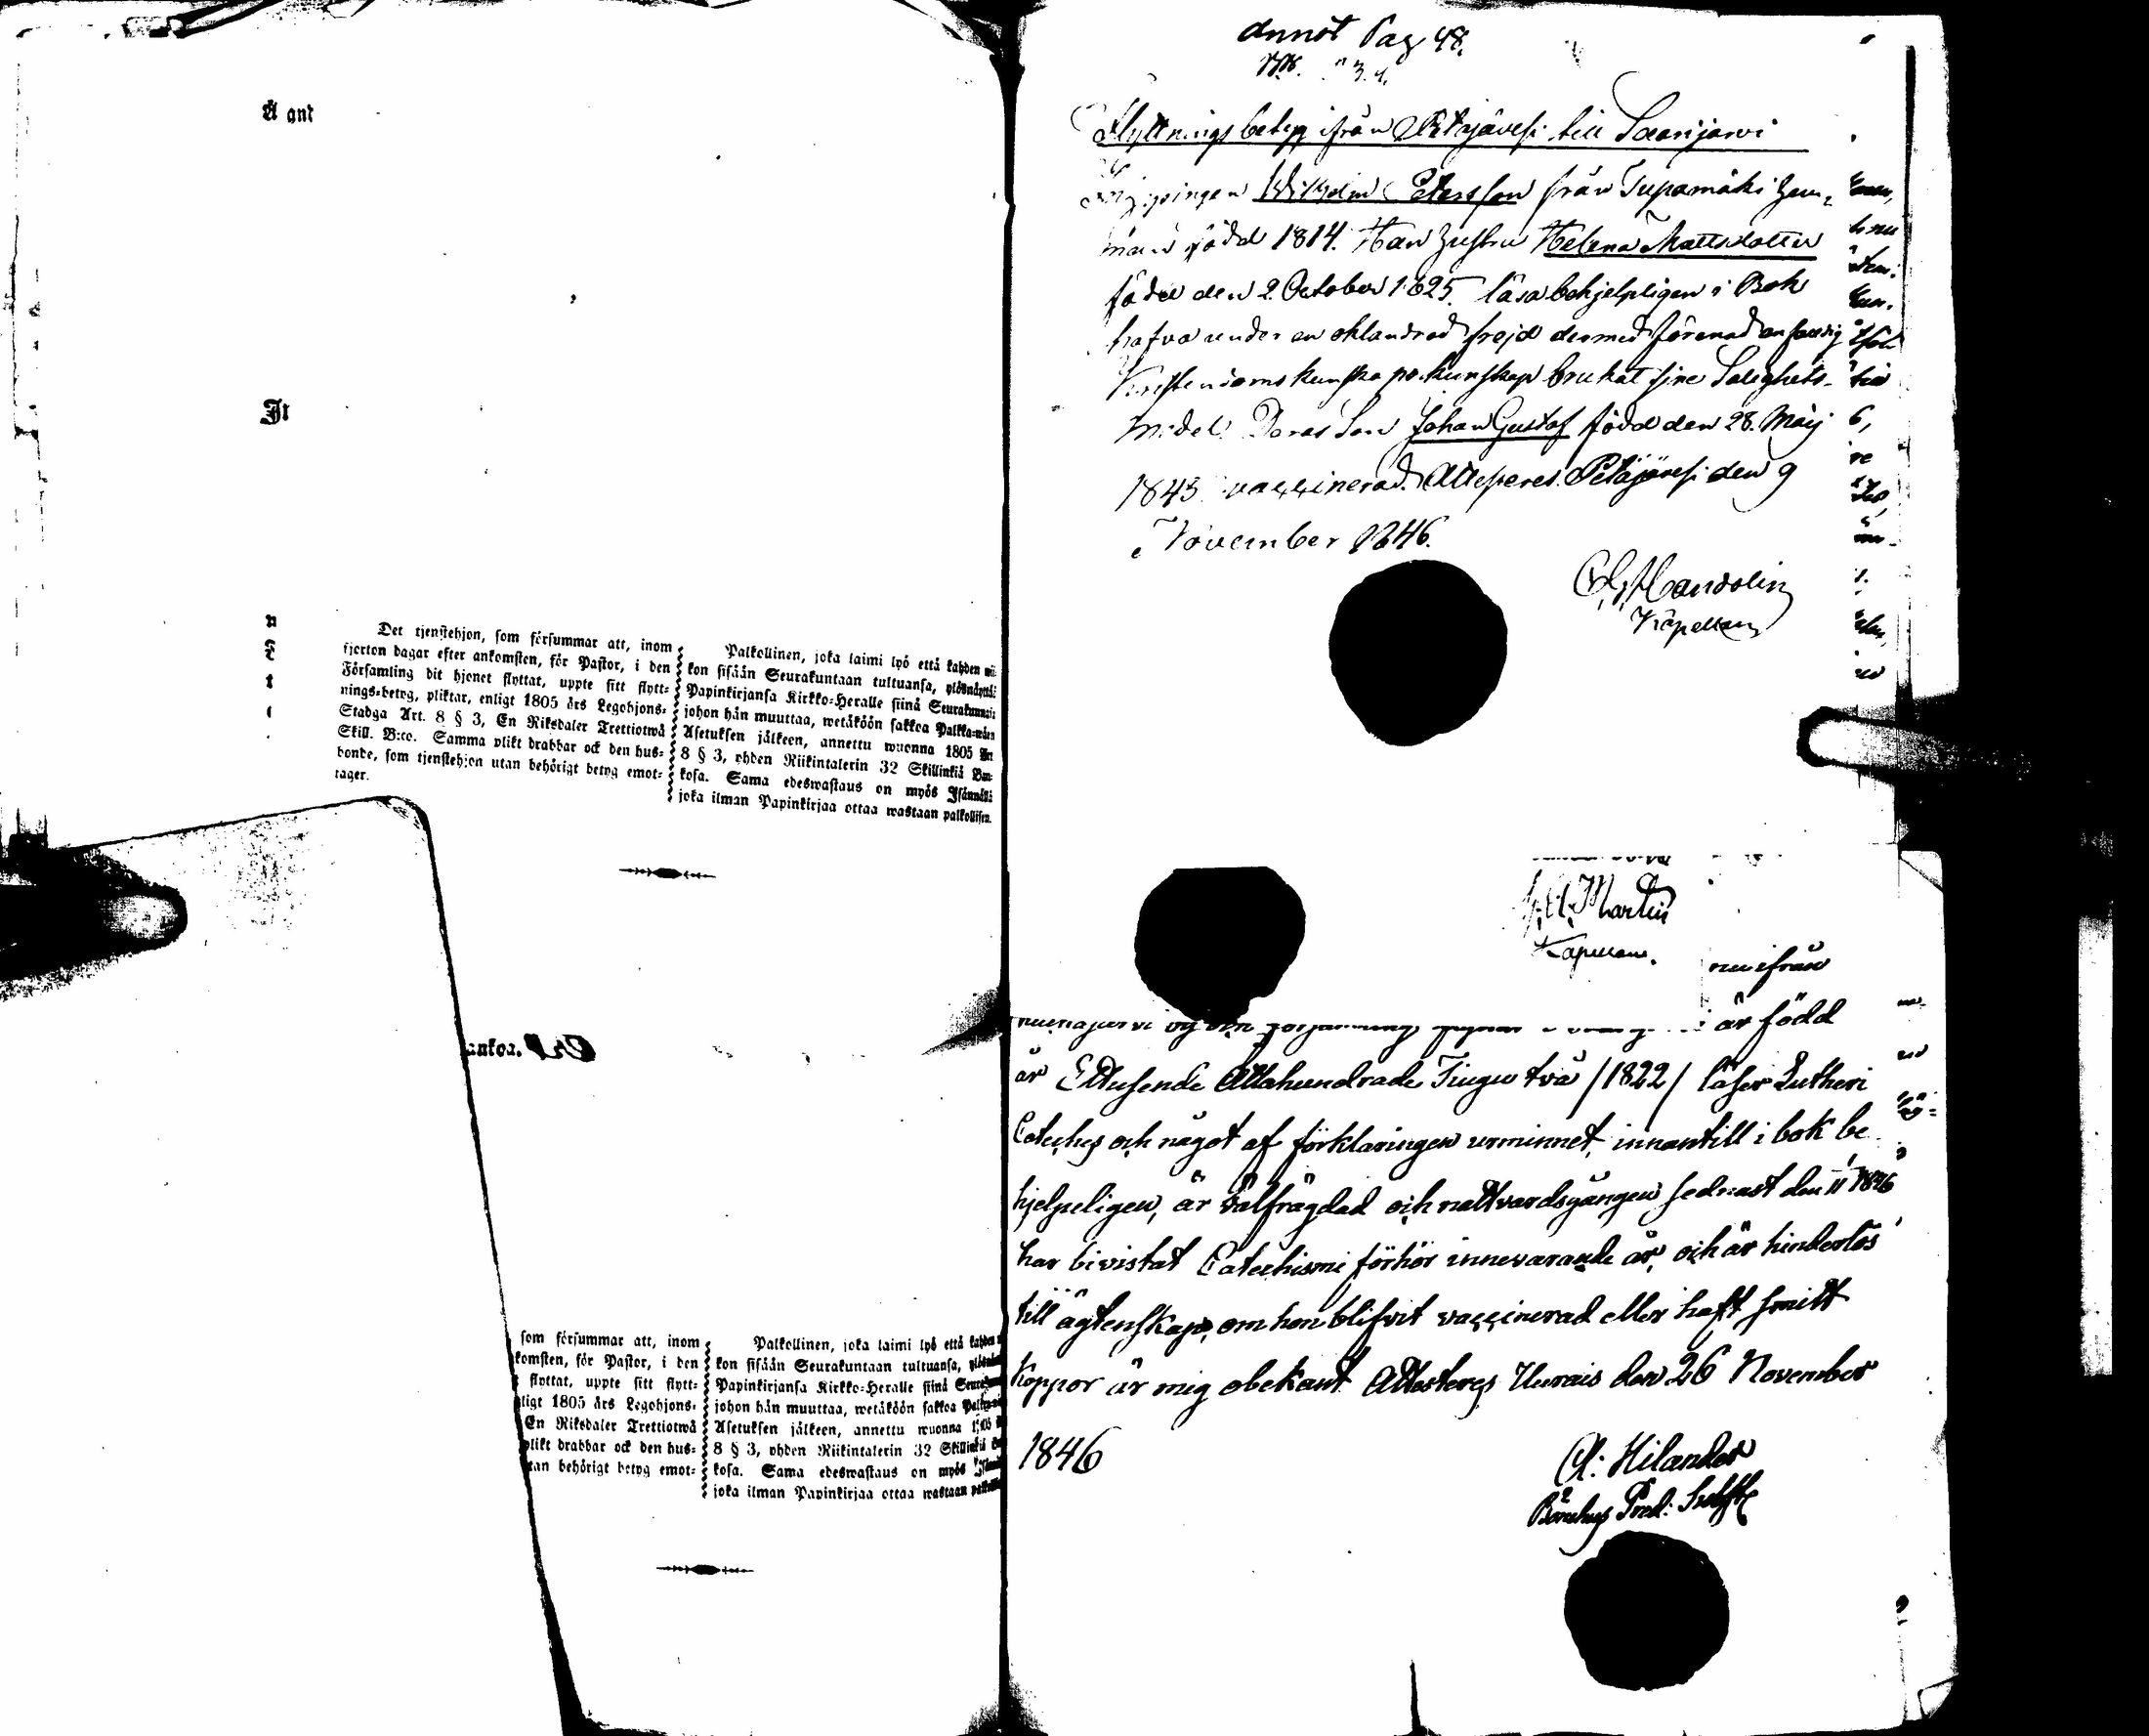 Kant
It
Det tjenstehjon, som försummar att, inom
fjorton dagar efter ankomsten, för Pastor, i den
Församling dit hjonet flyttat, uppte sitt flytt-
nings-betyg, pliktar, enligt 1805 års Legohjons-
Stadga Art. 8 § 3, En Riksdaler Trettiotwå
Skill. B:co. Samma plikt drabbar ock den hus-
bonde, som tjenstehjon utan behörigt betyg emot-
tager.
Palkollinen, joka laimi lyö että kahden
kon sisään Seurakuntaan tultuansa,
Papinkirjansa Kirkko-Heralle siinä
johon hän muuttaa, wetäköön sakkoa
Asetuksen jälkeen, annettu wuonna 1805
8 § 3, yhden Riikintalerin 32 Skillinkiä
kosa. Sama edeswastaus on myös
joka ilman Papinkirjaa ottaa wastaan palkollisen.
ankoa.
som försummar att, inom
komsten, för Pastor, i den
flyttat, uppte sitt flytt-
ligt 1805 års Legohjons-
En Riksdaler Trettiotwå
plikt drabbar ock den hus-
tan behörigt betyg emot-
Palkollinen, joka laimi lyö että kahden
kon sisään Seurakuntaan tultuansa,
Papinkirjansa Kirkko-Heralle siinä
johon hän muuttaa, wetäköön sakkoa
Asetuksen jälkeen, annettu wuonna
8 § 3, yhden Riikintalerin 32 Skillinkiä
kosa. Sama edeswastaus on myös
joka ilman Papinkirjaa ottaa wastaan
annot Pag 48.
Flyttnings betyg ifrån Petäjävesi till Saarijarvi
Wilhelm Petersson från Tupamäki hem-
man född 1814. Han hustru Helena Mattsdotter
född den 2. October 1825. läsa behjelpligen i Bok
hafva under en oklandrad frejd dermed förenad
Kristendoms kunskap brukat sine Salighets-
medel. Deras Son Johan Gustaf född den 28. Maij
1843 vaccinerad. Attesteres. Petäjävesi den 9
November 1846.
Kapellan
Martin
Kapellan.
ifrån
är född
år Ettusende Åttahundrade Tiugu två /1822/ läser Lutheri
Cateches och något af förklaringen urminnet, innantill i bok be
hjelpeligen, är välfrägdad och nattvardsgången sednast den
har bivistat Catechismi förhör innevarande år, och är hinderlös
till ägtenskap, om hon blifvit vaccinerad eller haft smitt
koppor är mig obekant Attesteres Uurais den 26 November
1846
A: Hilander
Pred: